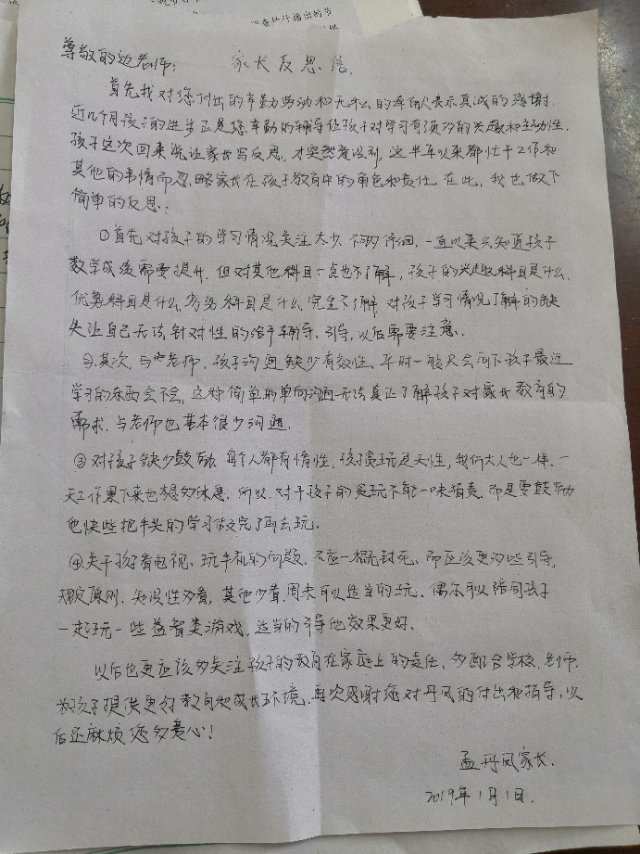 家长反思信
尊敬的边老师:
首先我对您付出的辛勤劳动和无私的奉献表示真诚的感谢.
近几个月孩子的进步正是您辛勤的辅导让孩子对学习有了更多的兴趣和主动性.
孩子这次回来说让家长写反思, 才突然意识到, 这半年以来都忙于工作和
其他的事情而忽略家长在孩子教育中的角色和责任. 在此, 我也做下
简单的反思:
①首先对孩子的学习情况关注太少 一直以来只知道孩子
数学成绩需要提升. 但对其他科目一点也不了解, 孩子的兴趣科目是什么.
优势科目是什么, 弱势科目是什么. 完全不了解. 对孩子学习情况了解的缺
失让自己无法针对性的给予辅导、引导, 以后需要注意.
②其次, 与老师、孩子沟通缺少有效性. 平时一般只会问下孩子最近
学习的东西会不会, 这种简单的单向沟通无法真正了解孩子对家长教育的
需求. 与老师也基本很少沟通.
③对孩子缺少鼓励. 每个人都有惰性. 孩子贪玩是天性, 我们大人也一样. 一
天工作累下来也想多休息. 所以. 对于孩子的贪玩不能一味指责. 而是要鼓励
他快些把手头的学习做完了再去玩.
④关于孩子看电视、玩手机的问题. 不应一概封死. 而应该更多些引导,
原则. 知识性多看, 其他少看, 周末可以适当的玩. 偶尔可以陪同孩子
一起玩一些益智类游戏. 适当的引导也效果更好.
以后也更应该多关注孩子的教育在家庭上的责任, 多配合学校、老师.
为孩子提供更好教育和成长环境. 再次感谢您对丹凤的付出和指导, 以
后还麻烦您多费心!
孟丹凤家长.
2019年1月1日.